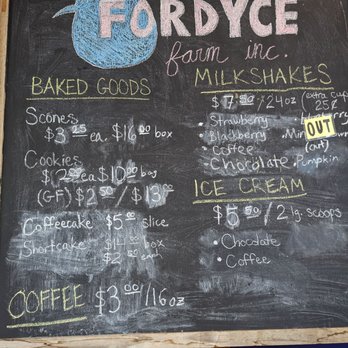 FORDYCE
farm inc.
BAKED GOODS
Scones
$3.25 ea. $16.00 box
Cookies
$10.00 bag
(GF) $2.50 / $13.00
Coffeecake $5.00 slice
Shortcake $14.00 box
$2.50 each
COFFEE $3.00/16oz
MILKSHAKES
$7.50/24oz (extra cup 25¢
• Strawberry
• Blackberry
• Coffee
• Chocolate
OUT
(out)
• Pumpkin
ICE CREAM
$5.50/2 lg. scoops
• Chocolate
• Coffee